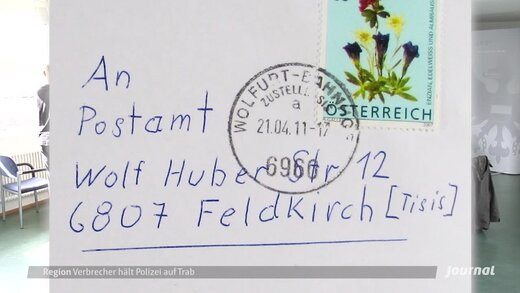 ENZIAN, EDELWEISS UND ALMRAUSCH
ÖSTERREICH
WOLFURT-BAHNHOF
ZUSTELLBASIS
a
21.04.11-17
6960
An
Postamt
Wolf Huber Str 12
6807 Feldkirch [Tisis]
Region Verbrecher hält Polizei auf Trab
journal